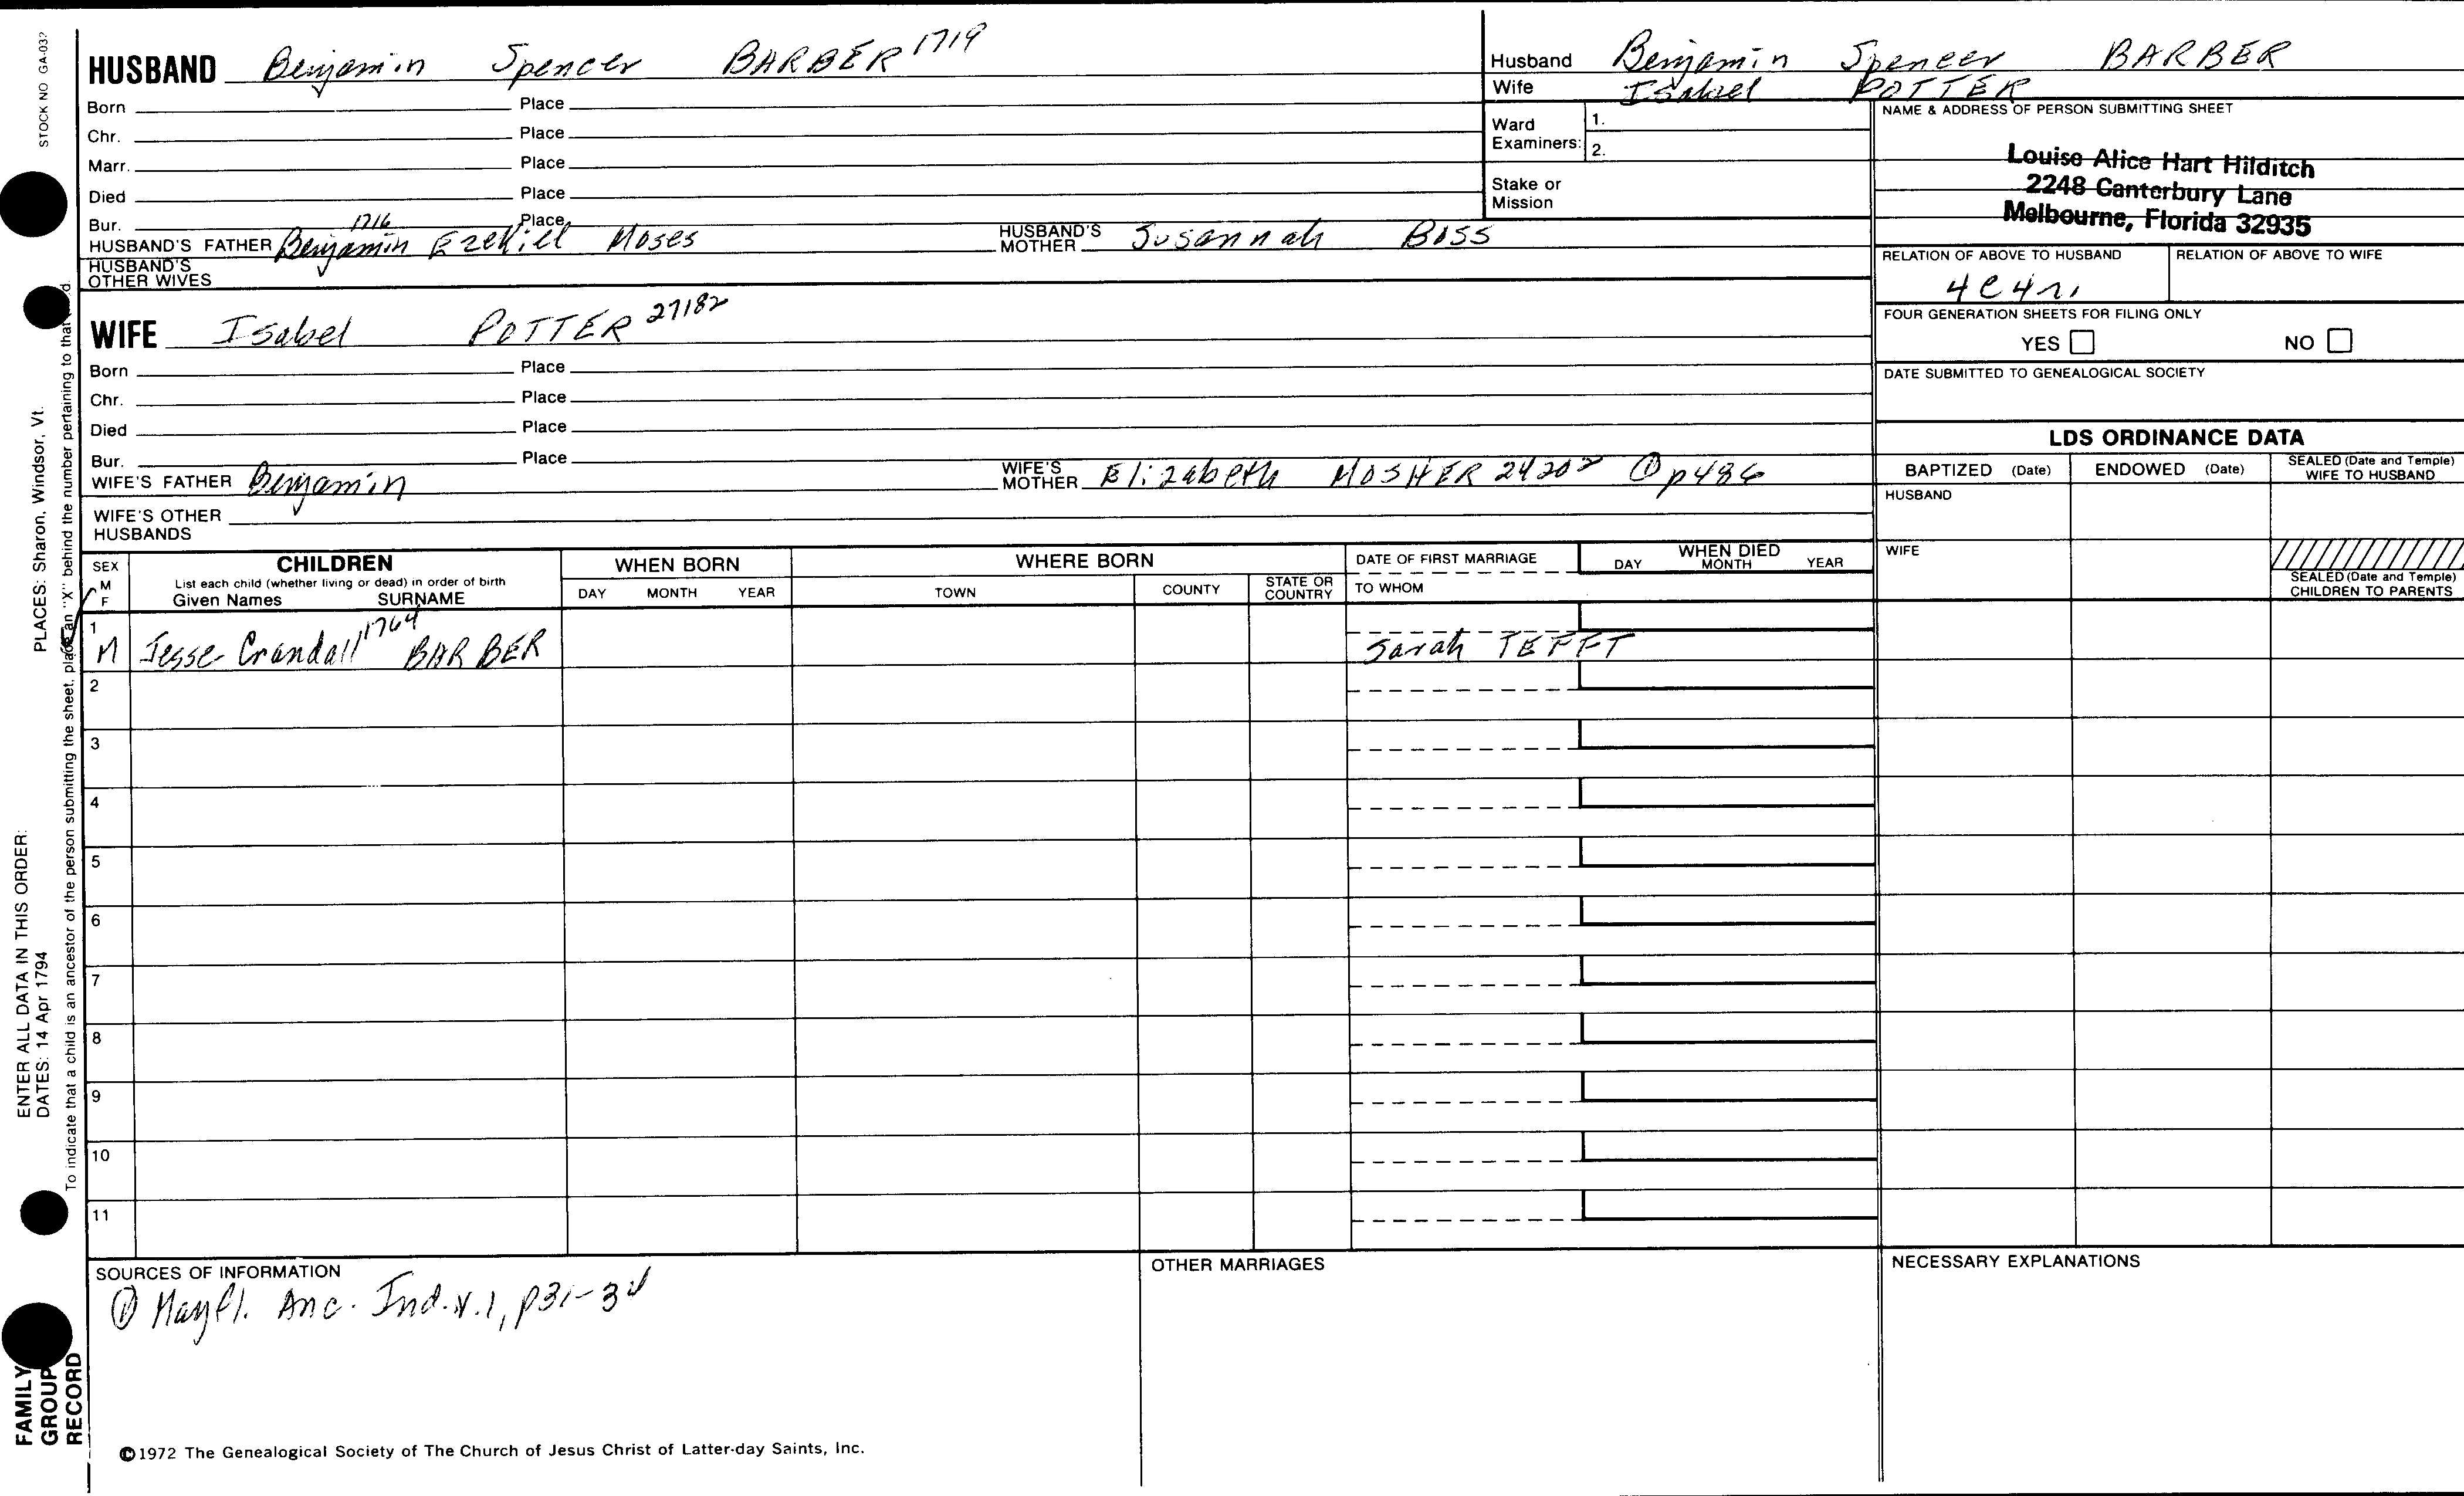 STOCK NO GA-032
HUSBAND Benjamin Spencer BARBER 1719
Born Place
Chr. Place
Marr. Place
Died Place
Bur. Place
1716
HUSBAND'S FATHER Benjamin Ezekiell Moses HUSBAND'S MOTHER Susannah BOSS
HUSBAND'S OTHER WIVES
WIFE Isabel POTTER 27182
Born Place
Chr. Place
Died Place
Bur. Place
WIFE'S FATHER Benjamin WIFE'S MOTHER Elizabeth MOSHER 24202 ① p486
WIFE'S OTHER HUSBANDS
Husband Benjamin Spencer BARBER
Wife Isabel POTTER
Ward Examiners: 1.
2.
Stake or Mission
NAME & ADDRESS OF PERSON SUBMITTING SHEET
Louise Alice Hart Hilditch
2248 Canterbury Lane
Melbourne, Florida 32935
RELATION OF ABOVE TO HUSBAND RELATION OF ABOVE TO WIFE
4C4r.
FOUR GENERATION SHEETS FOR FILING ONLY
YES NO
DATE SUBMITTED TO GENEALOGICAL SOCIETY
LDS ORDINANCE DATA
BAPTIZED (Date) ENDOWED (Date) SEALED (Date and Temple) WIFE TO HUSBAND
HUSBAND
WIFE
SEALED (Date and Temple) CHILDREN TO PARENTS
SEX M F
CHILDREN
List each child (whether living or dead) in order of birth
Given Names SURNAME
WHEN BORN
DAY MONTH YEAR
WHERE BORN
TOWN COUNTY STATE OR COUNTRY
DATE OF FIRST MARRIAGE
TO WHOM
WHEN DIED
DAY MONTH YEAR
1 M Jesse Crandall 1764 BARBER Sarah TEFFT
2
3
4
5
6
7
8
9
10
11
SOURCES OF INFORMATION
① Mayfl. Anc. Ind. v.1, p31-34
OTHER MARRIAGES
NECESSARY EXPLANATIONS
©1972 The Genealogical Society of The Church of Jesus Christ of Latter-day Saints, Inc.
ENTER ALL DATA IN THIS ORDER:
DATES: 14 Apr 1794 PLACES: Sharon, Windsor, Vt.
To indicate that a child is an ancestor of the person submitting the sheet, place an "X" behind the number pertaining to that
FAMILY GROUP RECORD